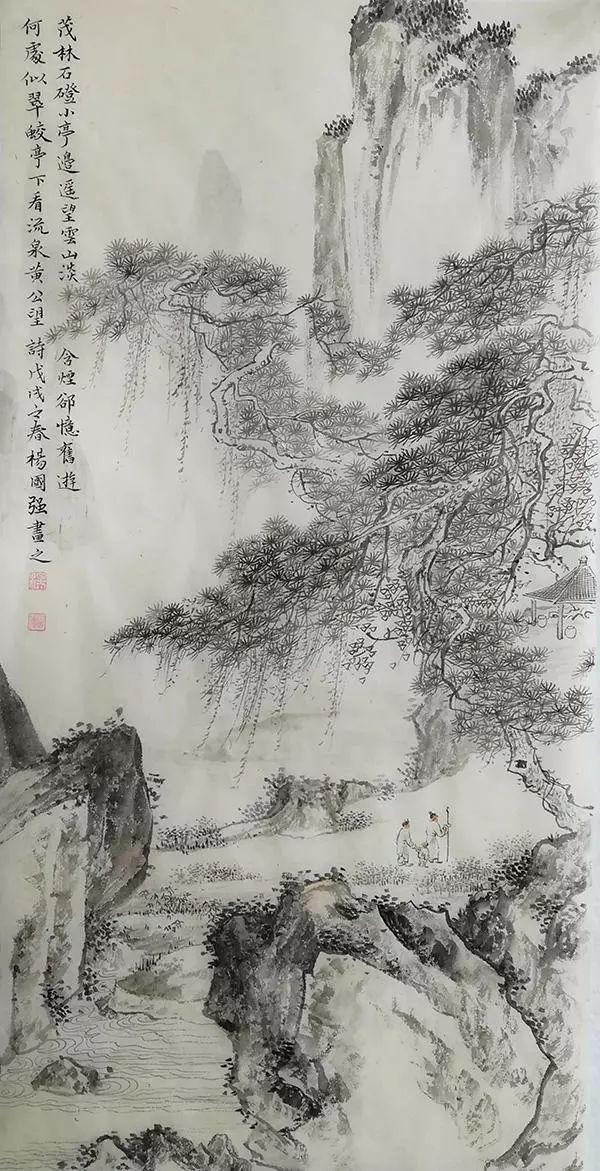 茂林石磴小亭邉遥望雲山淡　含煙郤憶舊遊
何處似翠蛟亭下看流泉黄公望　詩戊戌之春楊國强畫之